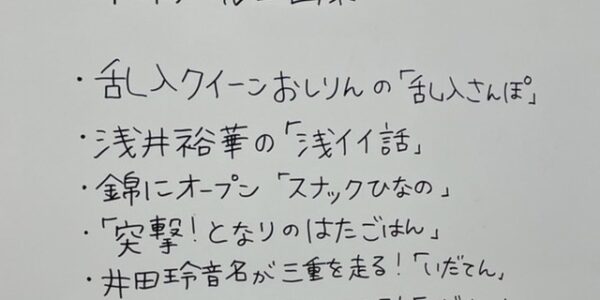 ・乱入クイーンおしりんの「乱入さんぽ」
・浅井裕華の「浅イイ話」
・錦にオープン「スナックひなの」
・「突撃!となりのはたごはん」
・井田玲音名が三重を走る!「いだてん」